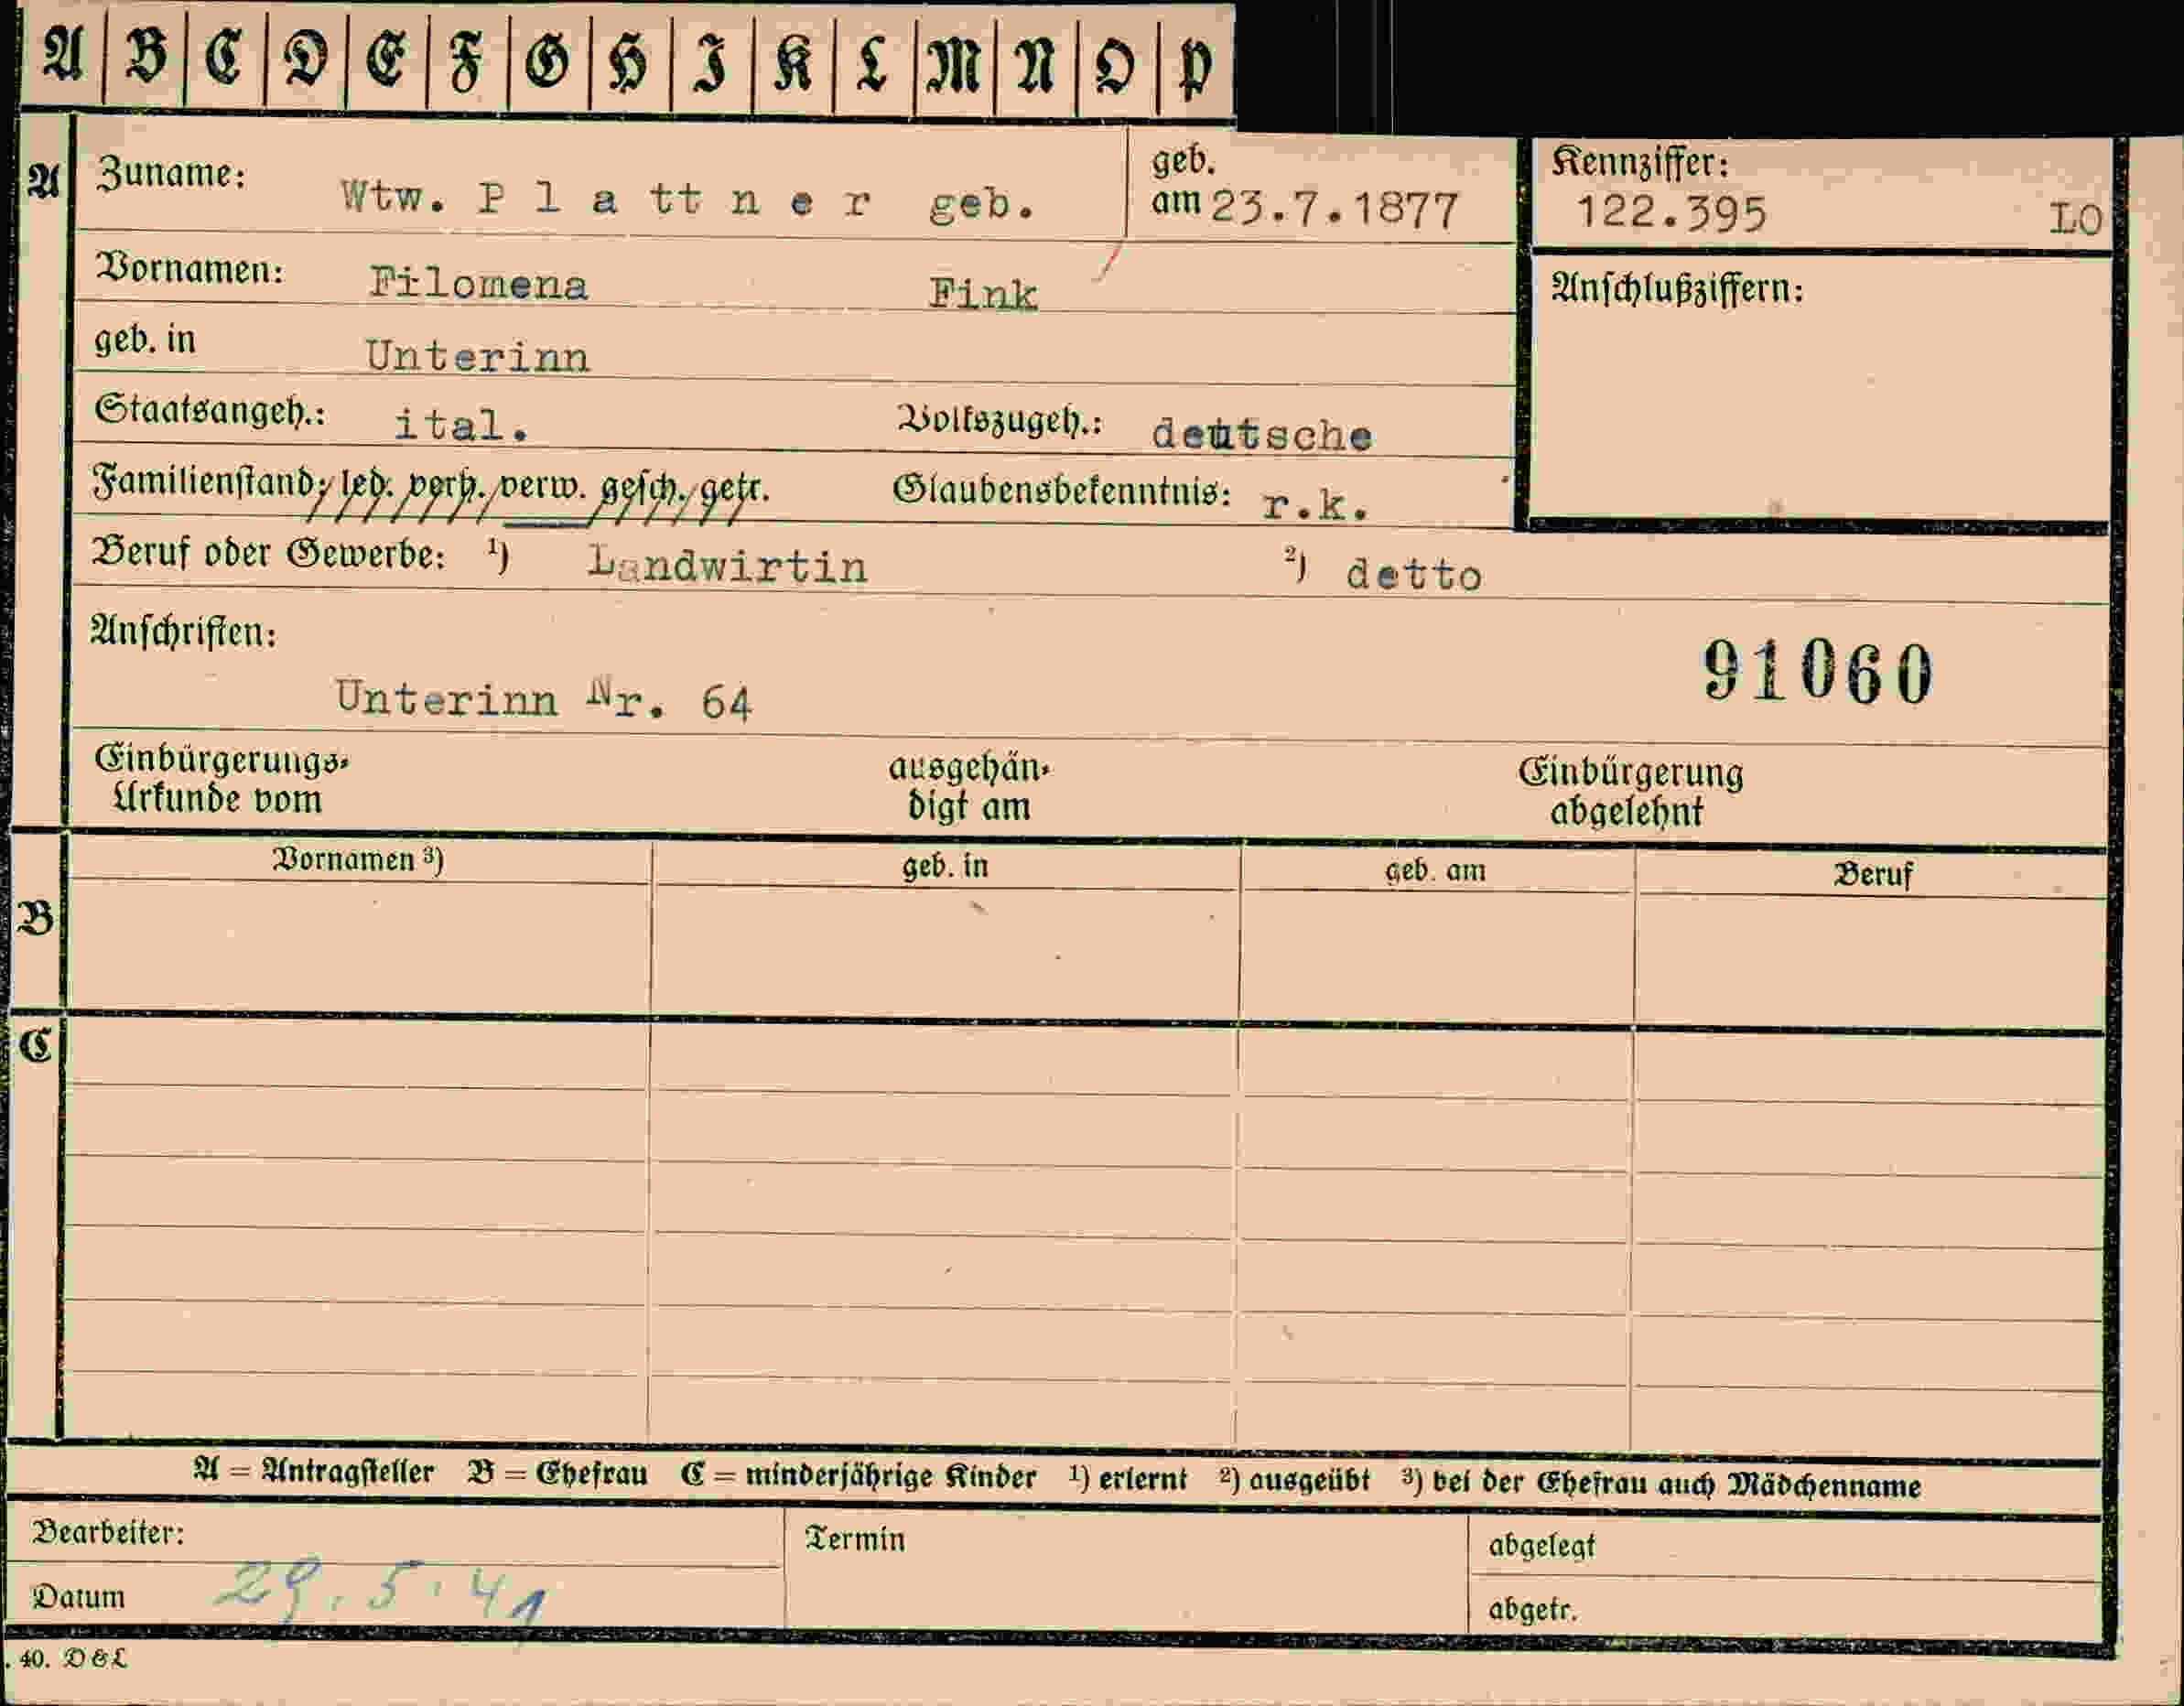 A B C D E F G H I K L M N O P
A Zuname: Wtw. P l a tt n e r geb. geb. am 23.7.1877 Kennziffer: 122.395 LO
Vornamen: Filomena Fink Anschlußziffern:
geb. in Unterinn
Staatsangeh.: ital. Volkszugeh.: deutsche
Familienstand: led. verh. verw. gesch. getr. Glaubensbekenntnis: r.k.
Beruf oder Gewerbe: 1) Landwirtin 2) detto
Anschriften:
91060
Unterinn Nr. 64
Einbürgerungs- ausgehän- Einbürgerung
Urkunde vom digt am abgelehnt
Vornamen 3) geb. in geb. am Beruf
B
C
A = Antragsteller B = Ehefrau C = minderjährige Kinder 1) erlernt 2) ausgeübt 3) bei der Ehefrau auch Mädchenname
Bearbeiter: Termin abgelegt
Datum 29.5.41 abgetr.
. 40. D & L